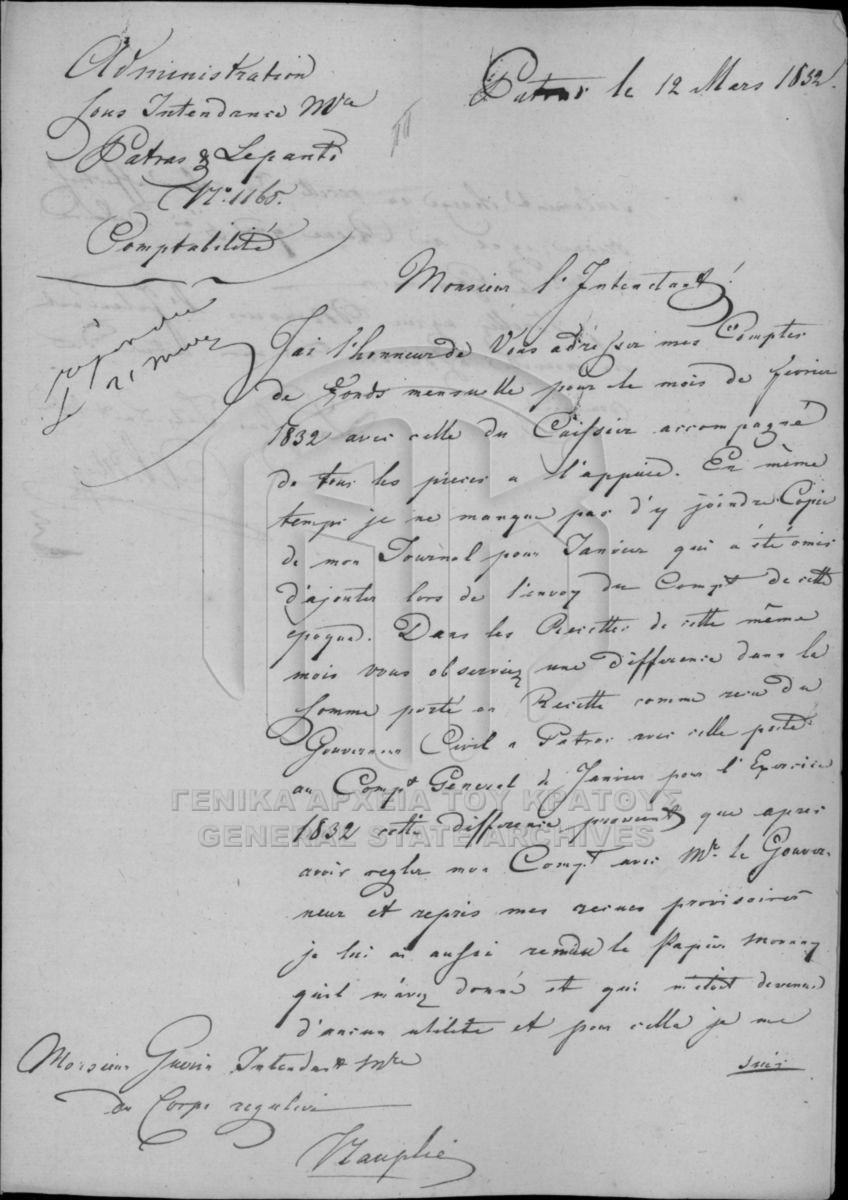 Administration
Sous Intendance Mre
Patras & Lepante
No. 1165.
Comptabilité
Patras le 12 Mars 1832.
répondu
le 21 mars
Monsieur l'Intendant!
J'ai l'honneur de Vous adresser mes Comptes
de Fonds mensuelle pour le mois de fevrier
1832 avec celle du Caissier accompagné
de tous les pieces a l'appuie. En même
temps je ne manque pas d'y joindre Copie
de mon Journal pour Janvier qui a été omis
d'ajouter lors de l'envoy du Compt de cette
epoque. Dans les Recettes de cette même
mois vous observiez une difference dans la
somme porté en Recette comme recu du
Gouverneur Civil a Patras avec celle porté
au Compt General de Janvier pour l'Exercice
1832 cette difference provient que apres
avoir regler mon Compt avec Mr. le Gouver-
neur et repris mes recues provisoires
je lui ai aussi rendu le Papier Monnay
quil m'avez donné et qui m'étoit devenue
d'aucun utilité et pour cella je me
suis
Monsieur Guerin Intendant Mre
du Corps regulier
Nauplie
ΓΕΝΙΚΑ ΑΡΧΕΙΑ ΤΟΥ ΚΡΑΤΟΥΣ
GENERAL STATE ARCHIVES